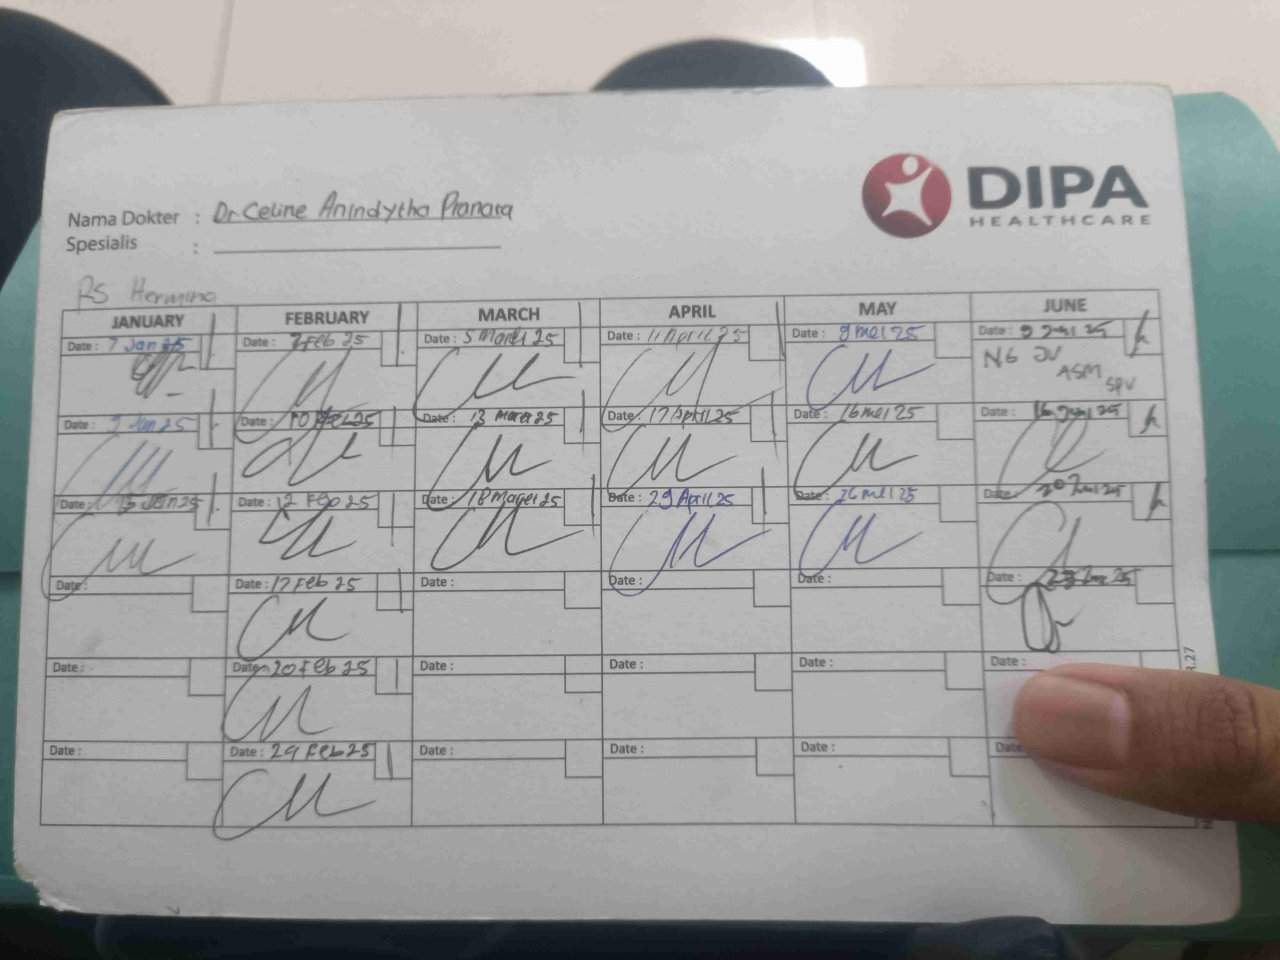 DIPA
HEALTHCARE
Nama Dokter : Dr. Celine Anindytha Pranata
Spesialis :
RS Hermina
JANUARY FEBRUARY MARCH APRIL MAY JUNE
Date : 7 Jan 25 Date : 7 Feb 25 Date : 5 Maret 25 Date : 11 April 25 Date : 9 mei 25 Date : 9 25
NG JV
ASM
SPV
Date : 9 Jan 25 Date : 10 Feb 25 Date : 13 Maret 25 Date : 17 April 25 Date : 16 mei 25 Date : 16 25
Date : 15 Jan 25 Date : 12 Feb 25 Date : 18 Maret 25 Date : 29 April 25 Date : 26 mei 25 Date : 20 25
Date : Date : 17 Feb 25 Date : Date : Date : Date : 25
Date : Date : 20 Feb 25 Date : Date : Date : Date :
Date : Date : 29 Feb 25 Date : Date : Date : Date